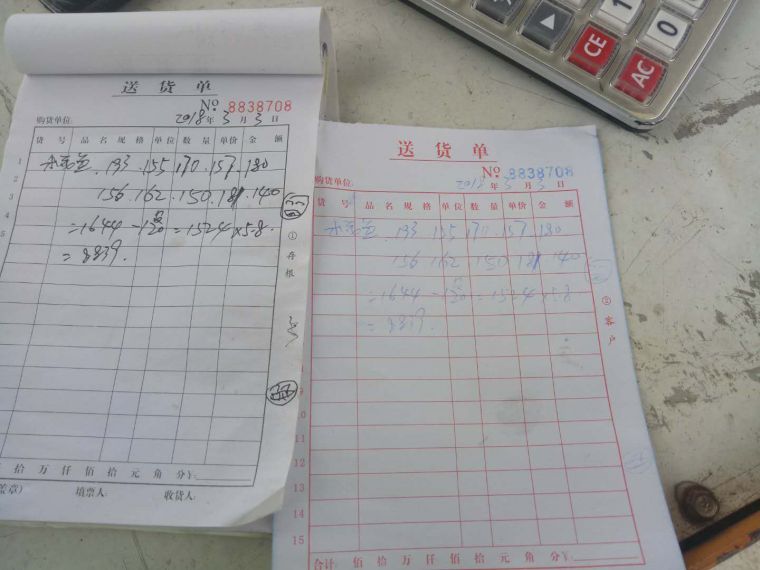 送货单
No 8838708
购货单位: 2018年 3月 3日
货号 品名规格 单位 数量 单价 金额
193 . 155 . 170 . 157 . 180
156 . 162 . 150 . 181 . 140
=1644 - 120 = 1524 × 5.8
= 8839.
①存根
拾 万 仟 佰 拾 元 角 分¥:
盖章) 填票人: 收货人:
送货单
No 8838708
购货单位: 2018年 3月 3日
货号 品名规格 单位 数量 单价 金额
193 155 170 . 157 . 180
156 162 150 181 140
=1644 - 120 = 1524 × 5.8
= 8839.
②客户
合计: 佰 拾 万 仟 佰 拾 元 角 分¥:
1
2
3
4
5
9
10
11
12
13
15
CE
AC
1
0